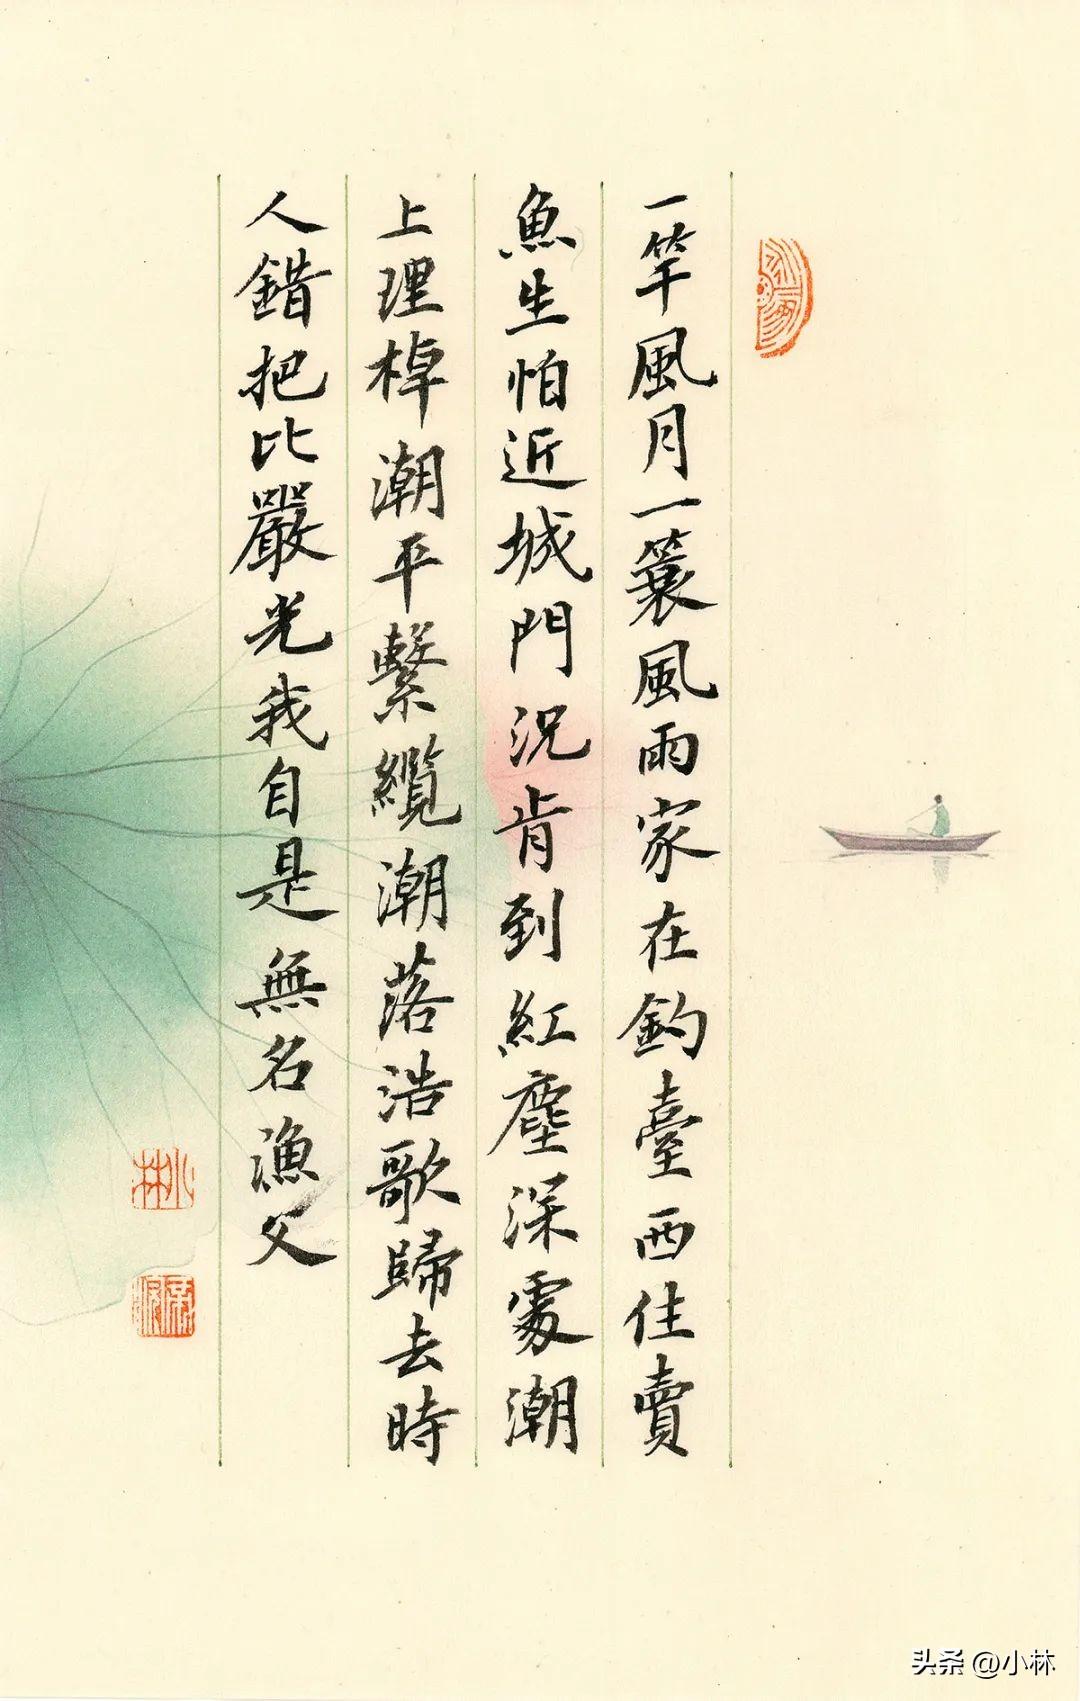 一竿風月一蓑風雨家在釣臺西住賣
魚生怕近城門況肯到紅塵深處潮
上理棹潮平繫纜潮落浩歌歸去時
人錯把比嚴光我自是無名漁父
小林
头条 @小林